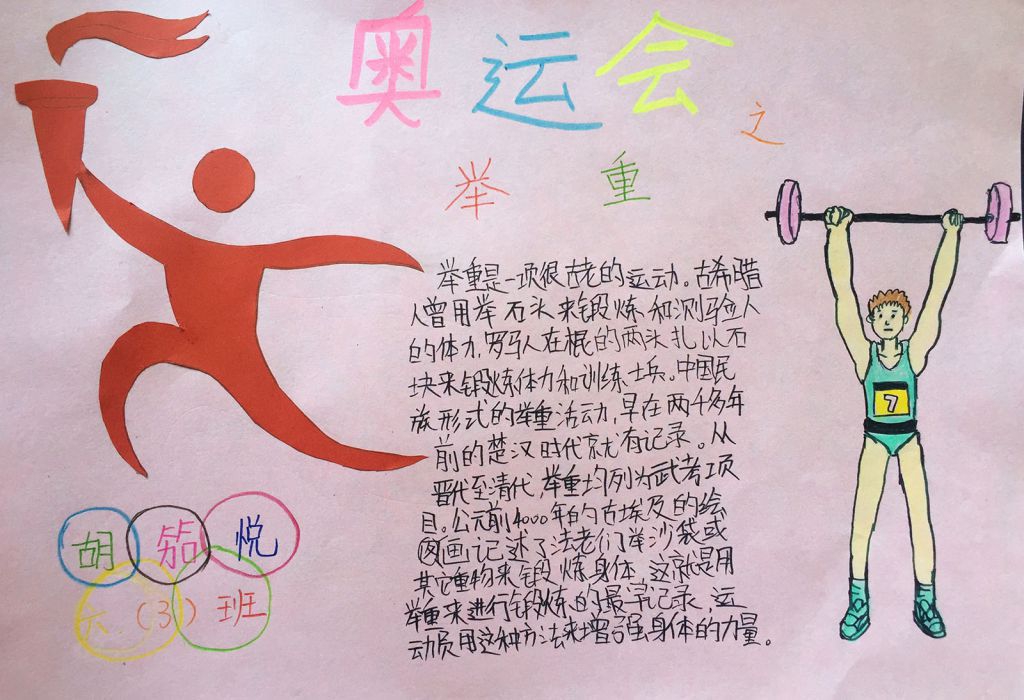 奥运会
之
举重
举重是一项很古老的运动。古希腊
人曾用举石头来锻炼和测验人
的体力,罗马人在棍的两头扎以石
块来锻炼体力和训练士兵。中国民
族形式的举重活动,早在两千多年
前的楚汉时代就有记录。从
晋代至清代,举重均列为武考项
目。公元前4000年的古埃及的绘
画,记述了法老们举沙袋或
其它重物来锻炼身体,这就是用
举重来进行锻炼的最早记录,运
动员用这种方法来增强身体的力量。
7
胡笳悦
六(3)班